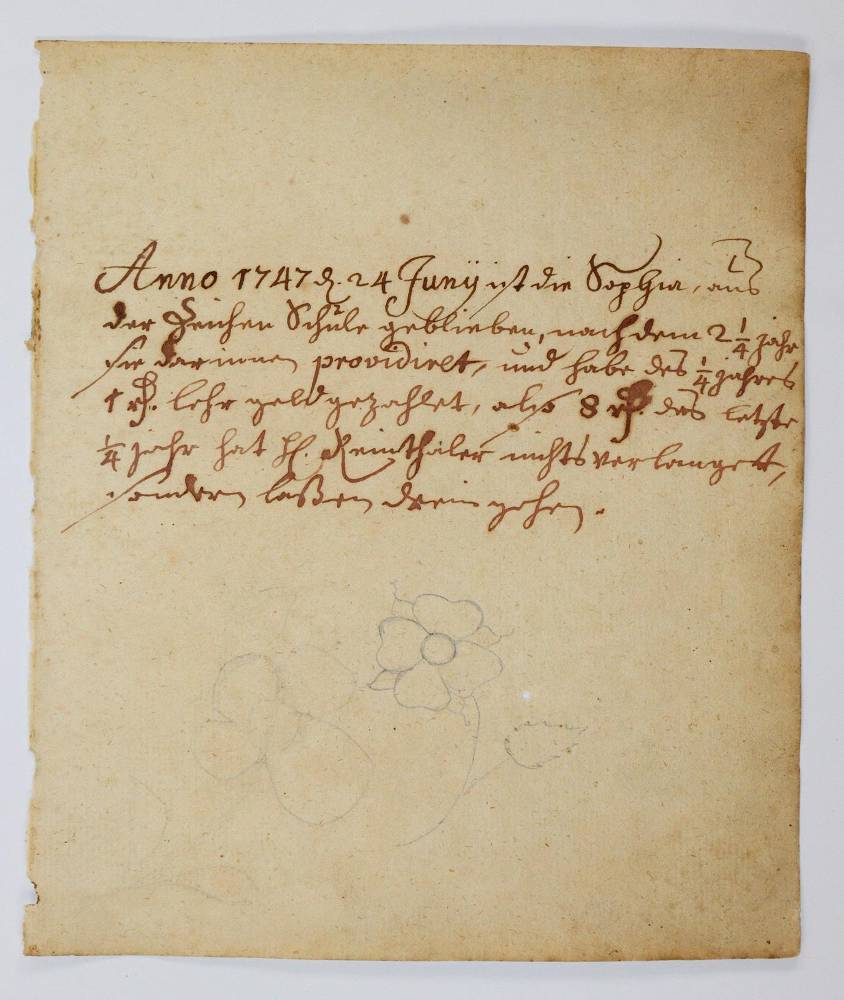 Anno 1747 d. 24 Junÿ ist die Sophia, aus
der Zeichen Schule geblieben, nachdem 2 1/4 jahr
sie darinnen providiret, und habe des 1/4 jahres
1 rh. lehr geld gezahlet, alß 8 rh. das letzte
1/4 jahr hat H. Reinthaler nichts verlanget,
sondern laßen drein gehen.